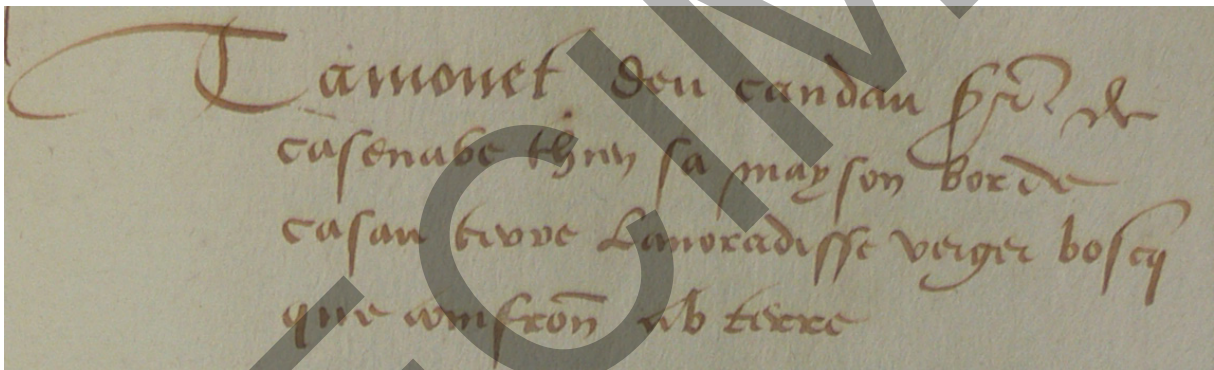 Tamonet deu candau sr de
casenabe thien sa mayson borde
casau terre Lauoradisse verger boscq
que comfron ab terre